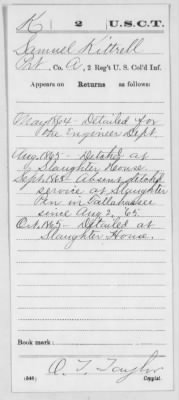 K | 2 | U.S.C.T.
Samuel Kittrell
Pvt, Co. A, 2 Reg't U. S. Col'd Inf.
Appears on Returns as follows:
May 1864 - Detailed for
the Engineer Dept.
Aug. 1865 - Detchd at
Slaughter House.
Sept. 1865 Absent detchd
service at Slaughter
Pen in Tallahassee
since Aug 2, 65.
Oct. 1865 - Detailed at
Slaughter House.
Book mark:
O. T. Taylor
(546) Copyist.